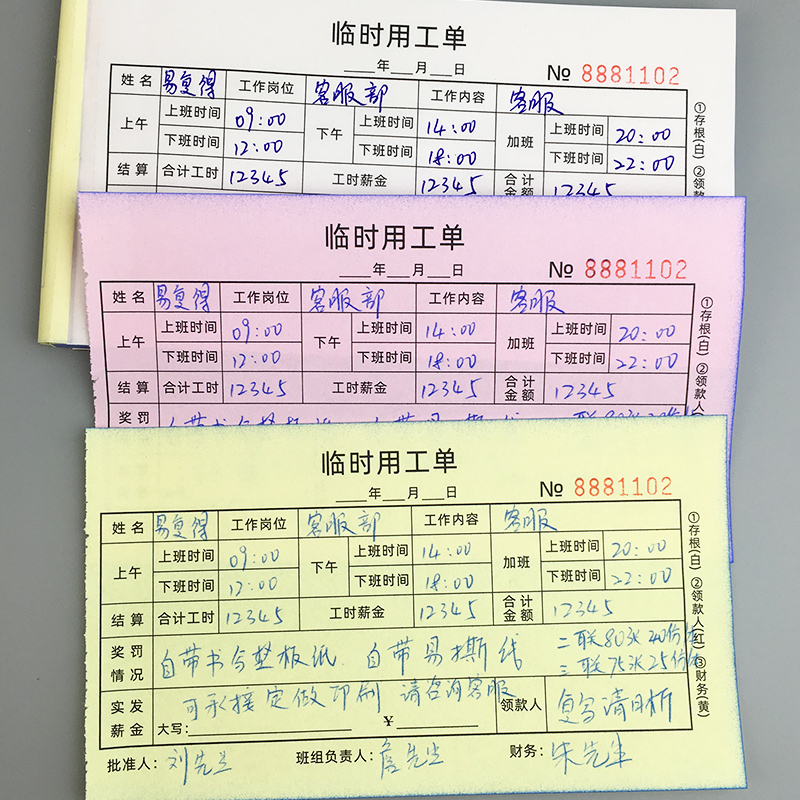 临时用工单
年 月 日 № 8881102
姓名 易复得 工作岗位 客服部 工作内容 客服
上午 上班时间 09:00 下午 上班时间 14:00 加班 上班时间 20:00
下班时间 12:00 下班时间 18:00 下班时间 22:00
结算 合计工时 12345 工时薪金 12345 合计金额 12345
①存根(白) ②领款
临时用工单
年 月 日 № 8881102
姓名 易复得 工作岗位 客服部 工作内容 客服
上午 上班时间 09:00 下午 上班时间 14:00 加班 上班时间 20:00
下班时间 12:00 下班时间 18:00 下班时间 22:00
结算 合计工时 12345 工时薪金 12345 合计金额 12345
奖罚
①存根(白) ②领款人
临时用工单
年 月 日 № 8881102
姓名 易复得 工作岗位 客服部 工作内容 客服
上午 上班时间 09:00 下午 上班时间 14:00 加班 上班时间 20:00
下班时间 12:00 下班时间 18:00 下班时间 22:00
结算 合计工时 12345 工时薪金 12345 合计金额 12345
奖罚情况 自带书写垫板纸 自带易撕线 二联80张40份
三联75张25份
实发薪金 可承接定做印刷 请咨询客服 领款人 复写清晰
大写: ¥
批准人: 刘先生 班组负责人: 詹先生 财务: 朱先生
①存根(白) ②领款人(红) ③财务(黄)